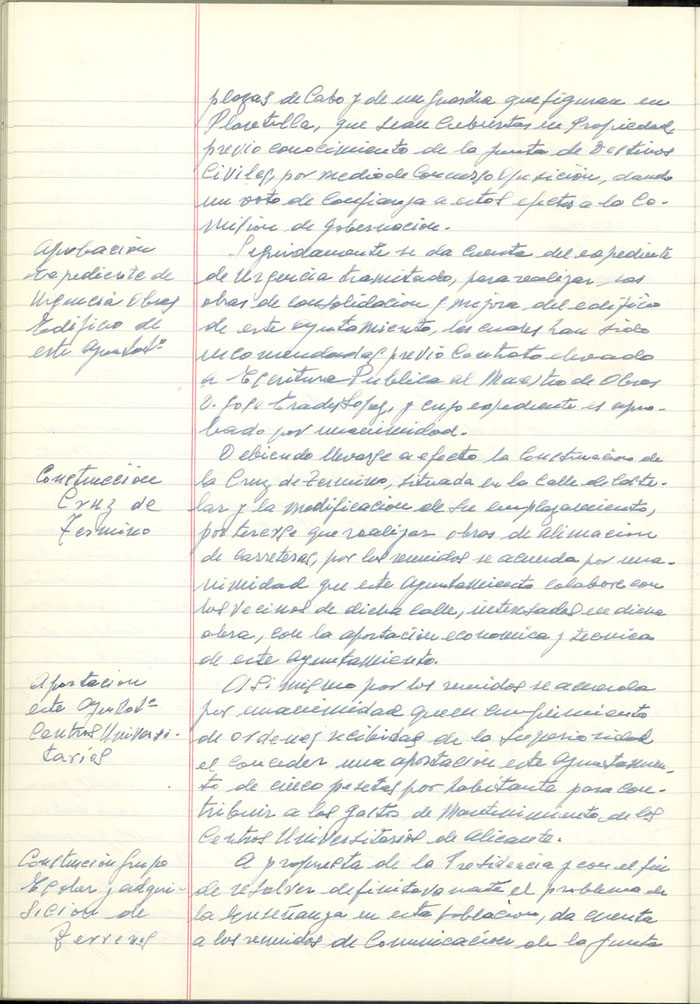 plazas de Cabo y de un guardia que figuran en
Plantilla, que sean cubiertas en Propiedad
previo conocimiento de la Junta de Destinos
Civiles, por medio de Concurso Oposición, dando
un voto de Confianza a estos efectos a la Co-
misión de Gobernación.
Aprobación
Expediente de
Urgencia Obras
Edificio de
este Ayuntotº
Seguidamente se da cuenta del expediente
de Urgencia tramitado, para realizar las
obras de consolidacion y mejora del edificio
de este ayuntamiento, las cuales han sido
encomendadas previo Contrato elevado
a Escritura Publica al Maestro de Obras
D. José Lopez, y cuyo expediente es apro-
bado por unanimidad.
Construcción
Cruz de
Termino
Debiendo llevarse a efecto la Construccion de
la Cruz de Termino, situada en la Calle de Caste-
lar y la modificacion de su emplazamiento,
por tenerse que realizar obras de alineacion
de carreteras, por los reunidos se acuerda por una-
nimidad que este Ayuntamiento colabore con
los vecinos de dicha calle, interesados en dicha
obra, con la aportacion economica y tecnica
de este Ayuntamiento.
Aportacion
este Ayuntotº
Centros Universi-
tarios
Asi mismo por los reunidos se acuerda
por unanimidad que en cumplimiento
de ordenes recibidas de la Superioridad
el conceder una aportacion este Ayuntamien-
to de cinco pesetas por habitante para con-
tribuir a los gastos de Mantenimiento de los
Centros Universitarios de Alicante.
Construcion Grupo
Escolar y adqui-
sicion de
Terrenos
A propuesta de la Presidencia y con el fin
de resolver definitavamente el problema de
la Enseñanza en esta poblacion, da cuenta
a los reunidos de Comunicacion de la Junta